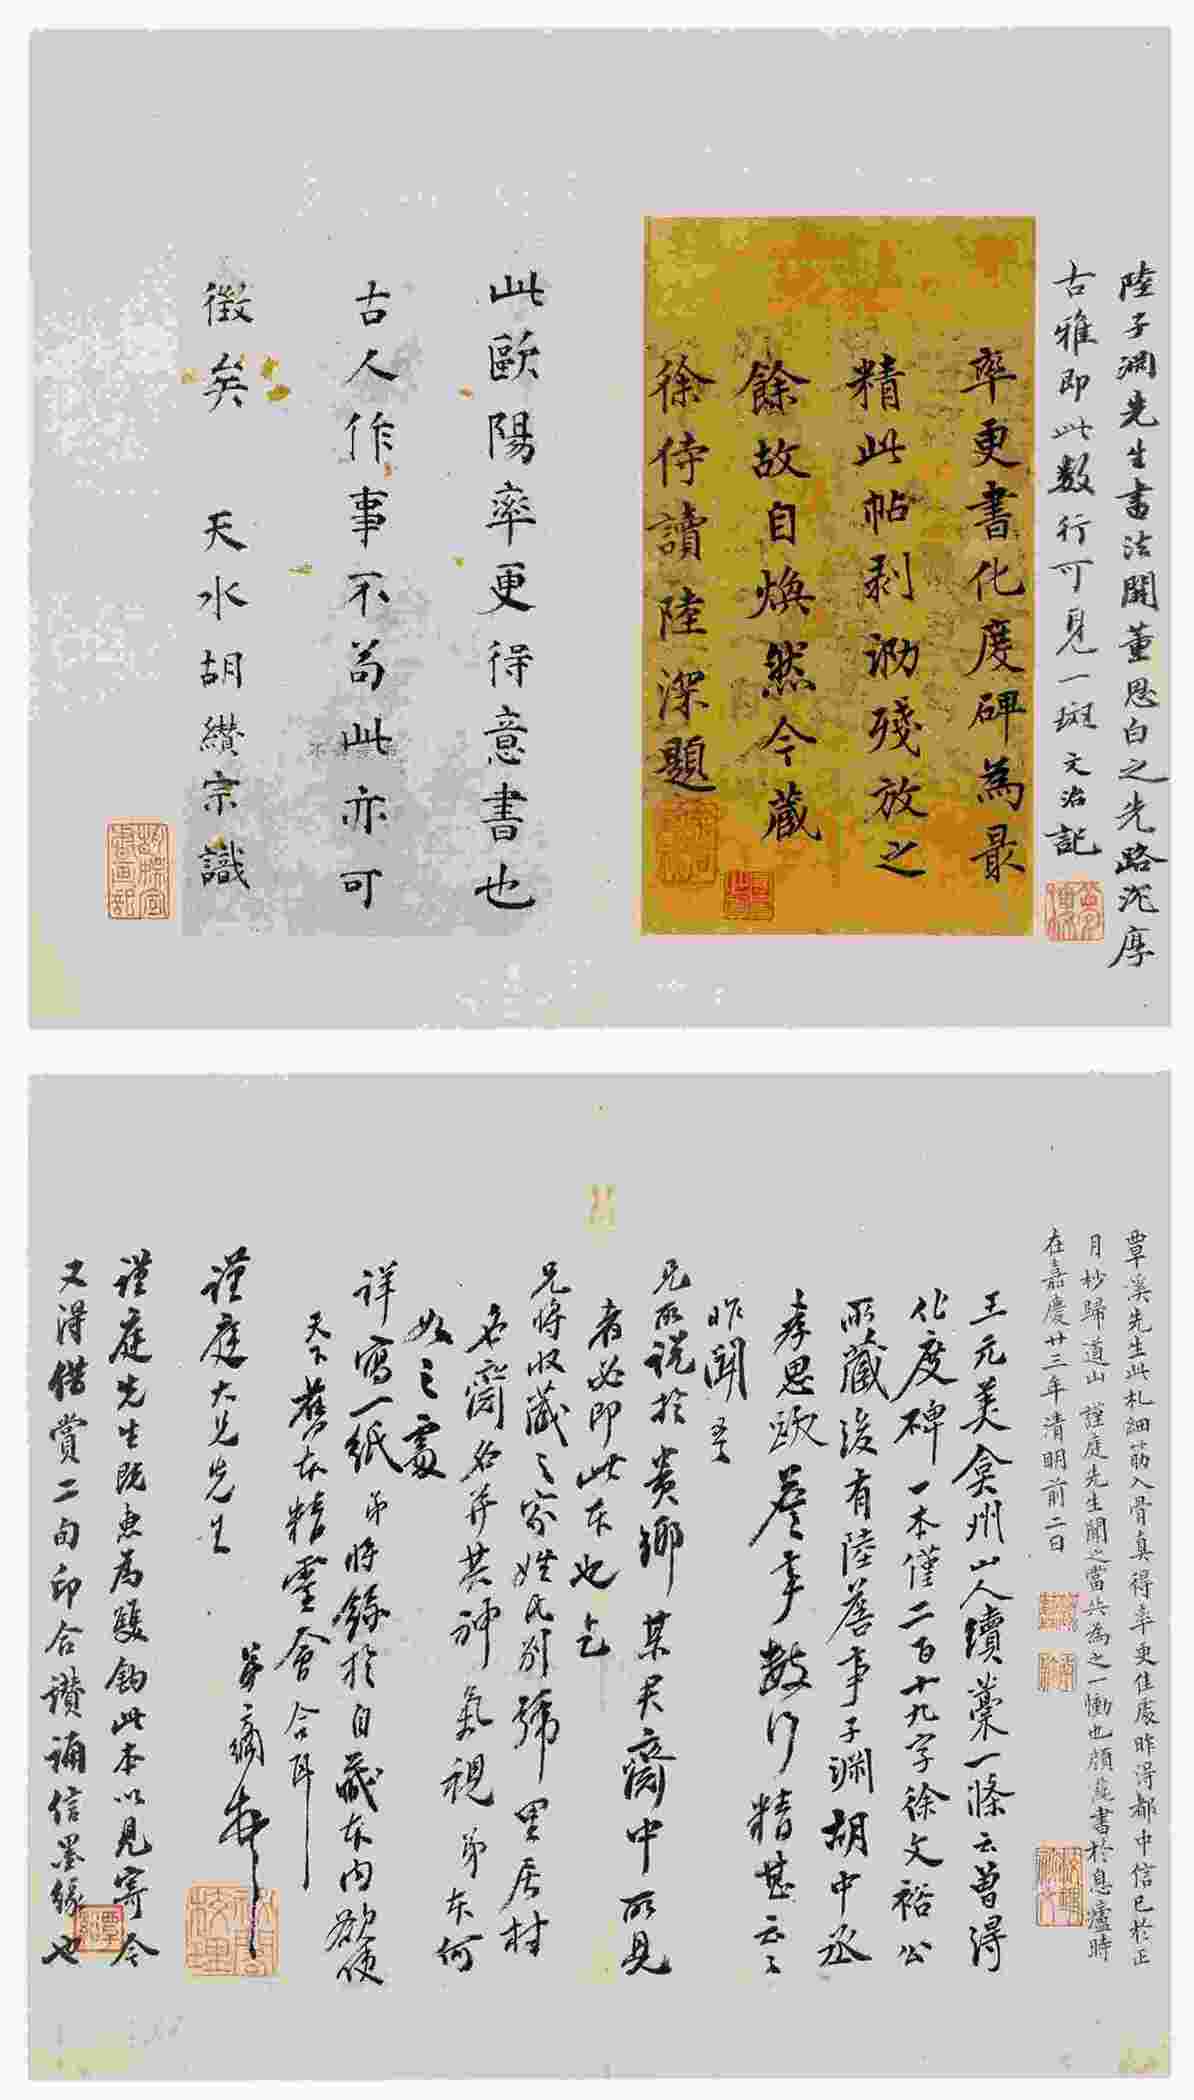 陸子淵先生書法開董思白之先路沉厚
古雅即此数行可見一斑 文治記
率更書化度碑為最
精此帖剥泐殘放之
餘故自煥然今藏
徐侍讀陸深題
此歐陽率更得意書也
古人作事不苟此亦可
徵矣 天水胡纘宗識
覃溪先生此札細筋入骨真得率更佳處昨得都中信已於正
月杪歸道山 謹庭先生聞之當共為之一慟也 書於息廬時
在嘉慶廿三年清明前二日
王元美弇州山人續藁一條云曾得
化度碑一本僅二百十九字徐文裕公
所藏後有陸詹事子淵胡中丞
孝思跋詹事數行精甚云云
昨聞
兄所說於貴鄉某君齋中所見
者必即此本也乞
兄將收藏之家姓氏別號里居村
名齋名并其神氣視弟本何
如之處
詳寫一紙弟將錄於自藏本內欲使
天下舊本精靈會合耳
謹庭大兄先生
弟方綱
謹庭先生既惠為雙鉤此本以見寄今
又得借賞二旬印合讚誦信墨緣也